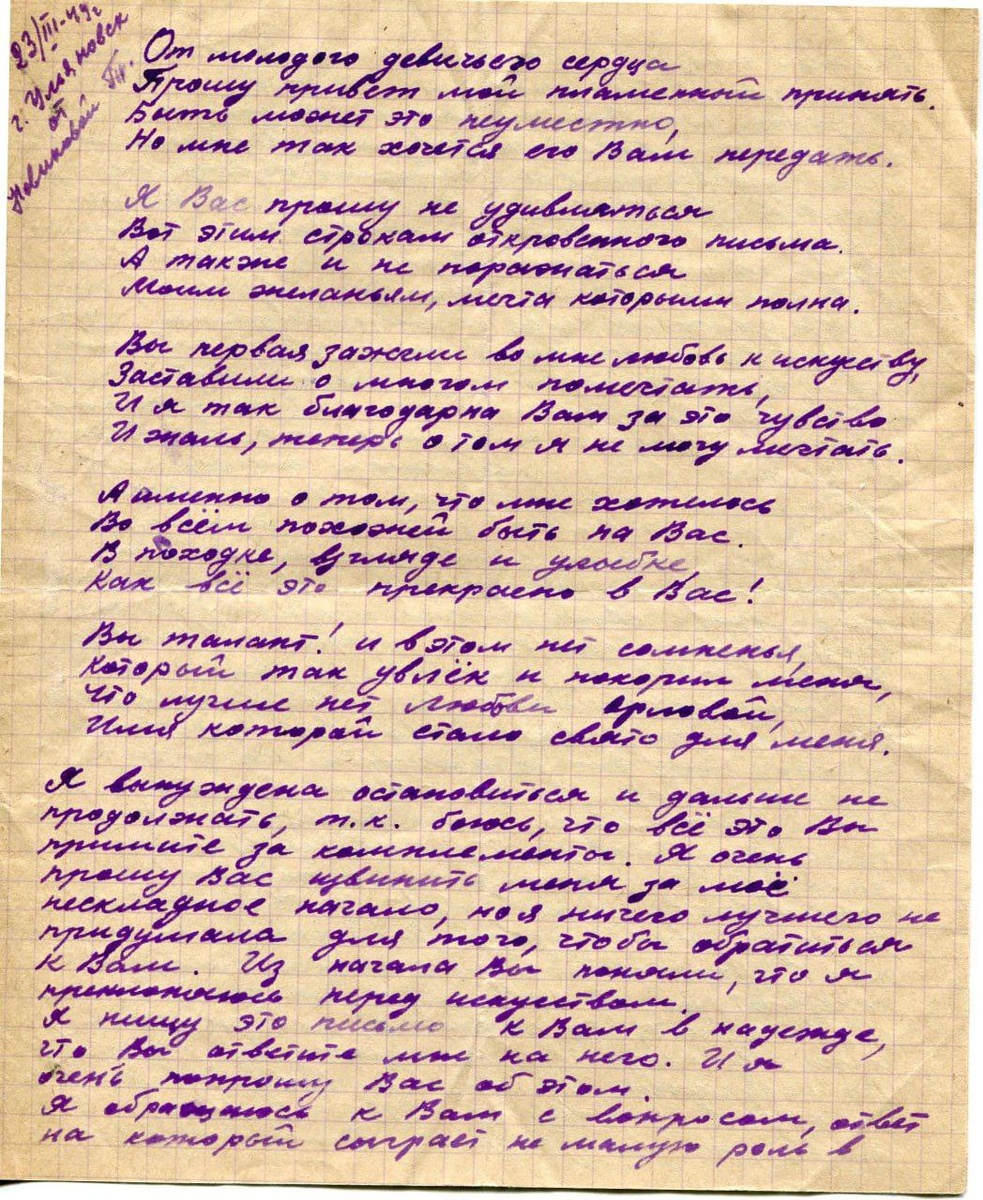 23/III-49г
г. Ульяновск
от
Новиковой
От молодого девичьего сердца
Прошу привет мой пламенный принять.
Быть может это неуместно,
Но мне так хочется его Вам передать.
Я Вас прошу не удивляться
Вот этим строкам откровенного письма.
А также и не поражаться
Моим желаньям, мечта которыми полна.
Вы первая зажгли во мне любовь к искуству,
Заставили о многом помечтать,
И я так благодарна Вам за это чувство
И жаль, теперь о том я не могу мечтать.
А именно о том, что мне хотелось
Во всём похожей быть на Вас.
В походке, взгляде и улыбке,
Как всё это прекрасно в Вас!
Вы талант! и в этом нет сомненья,
Который так увлёк и покорил меня,
Что лучше нет Любови Орловой,
Имя которой стало свято для меня.
Я вынуждена остановиться и дальше не
продолжать, т.к. боюсь, что всё это Вы
примите за комплементы. Я очень
прошу Вас извинить меня за моё
нескладное начало, но я ничего лучшего не
придумала для того, чтобы обратиться
к Вам. Из начала Вы поняли, что я
преклоняюсь перед искуством.
Я пишу это письмо к Вам в надежде,
что Вы ответите мне на него. И я
очень попрошу Вас об этом.
Я обращаюсь к Вам с вопросом, ответ
на который сыграет не малую роль в